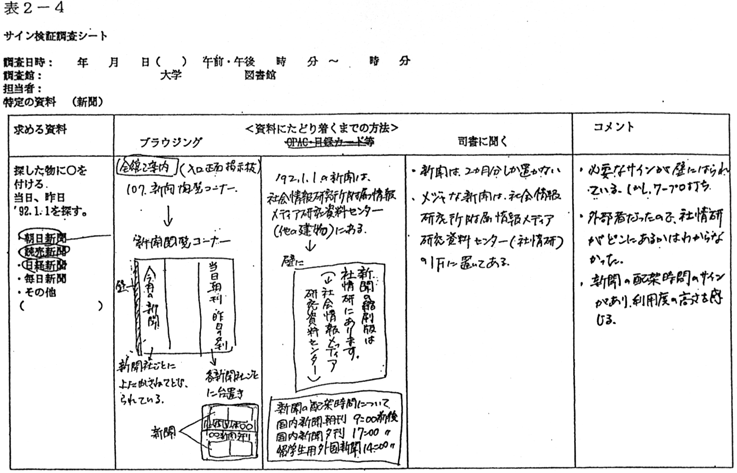 表2-4
サイン検証調査シート
調査日時: 年 月 日( ) 午前・午後 時 分 ~ 時 分
調査館: 大学 図書館
担当者:
特定の資料 (新聞)
求める資料
<資料にたどり着くまでの方法>
ブラウジング
OPAC・目録カード等
司書に聞く
コメント
探した物に○を
付ける。
当日、昨日
'92.1.1を探す。
・朝日新聞
・読売新聞
・日経新聞
・毎日新聞
・その他
( )
全館ご案内 (入口正面掲示板)
107. 新聞閲覧コーナー
新聞閲覧コーナー
壁
今月の新聞
当日朝刊 昨日の夕刊
新聞社ごとに
上にかさねてとじ
られている。
各新聞社ごと
に台置き
新聞
192.1.1の新聞は、
社会情報研究所附属情報
メディア研究資料センター
(他の建物)にある。
壁に
新聞の縮刷版は
社情研にあります。
(→社会情報メディア
研究資料センター)
新聞の配架時間について
国内新聞朝刊 9:00前後
国内新聞夕刊 17:00 〃
留学生用外国新聞 14:00 〃
・新聞は、2カ月分しか置かない
・メジャーな新聞は、社会情報
研究所附属情報メディア
研究資料センター(社情研)
の1Fに置いてある。
・必要なサインが壁にはられ
ている。しかし、ワープロ打ち。
・外部者だったので、社情研
がどこにあるかはわからな
かった。
・新聞の配架時間のサイン
があり、利用度の高さを感
じる。